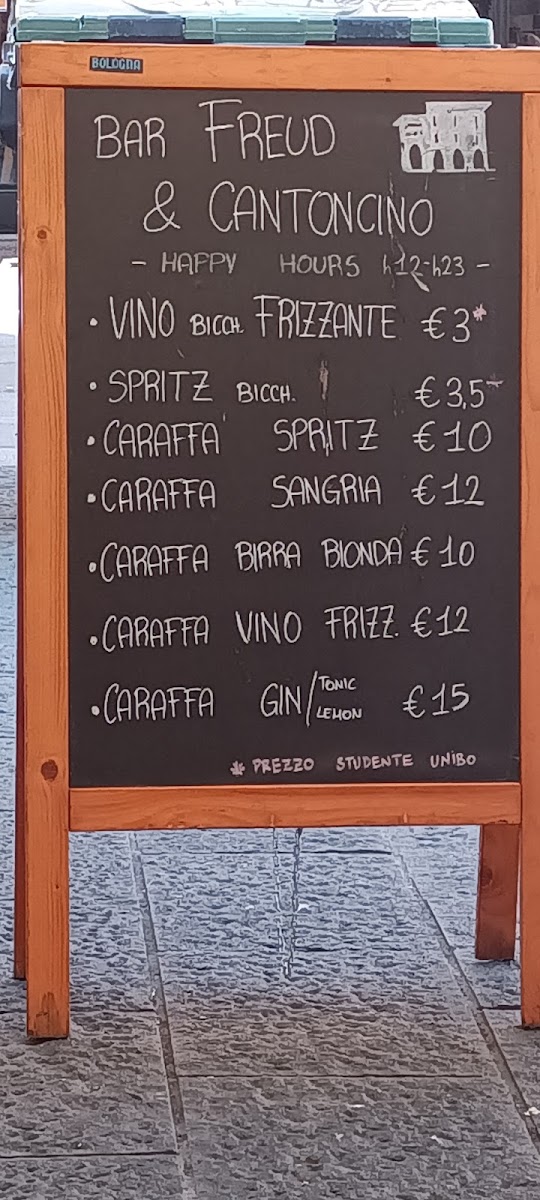 BOLOGNA
BAR FREUD
& CANTONCINO
- HAPPY HOURS h12-h23 -
• VINO BICCH. FRIZZANTE € 3*
• SPRITZ BICCH. € 3,5
• CARAFFA SPRITZ € 10
• CARAFFA SANGRIA € 12
• CARAFFA BIRRA BIONDA € 10
• CARAFFA VINO FRIZZ. € 12
• CARAFFA GIN/TONIC LEMON € 15
* PREZZO STUDENTE UNIBO